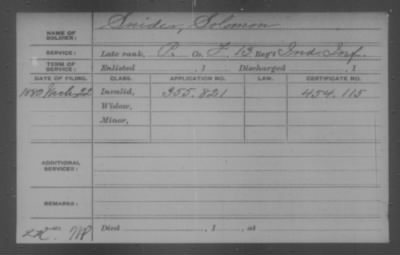 NAME OF SOLDIER: Snider, Solomon
SERVICE: Late rank, P. Co. F, 13 Reg't Ind. Inf.
TERM OF SERVICE: Enlisted , 1 Discharged , 1
DATE OF FILING. CLASS. APPLICATION NO. LAW. CERTIFICATE NO.
1880 Mch 22 Invalid, 355.821 454.115
Widow,
Minor,
ADDITIONAL SERVICES:
REMARKS:
Died , 1 , at